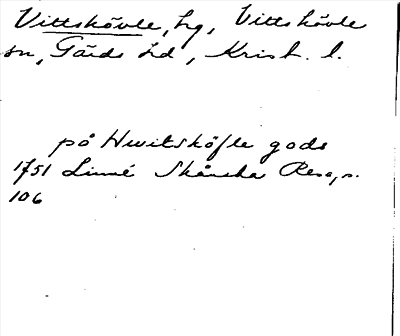 Vittskövle, hg, Vittskövle
sn, Gärds hd, Krist. l.
på Hwitsköfle gods
1751 Linné Skånska Resa, s.
106